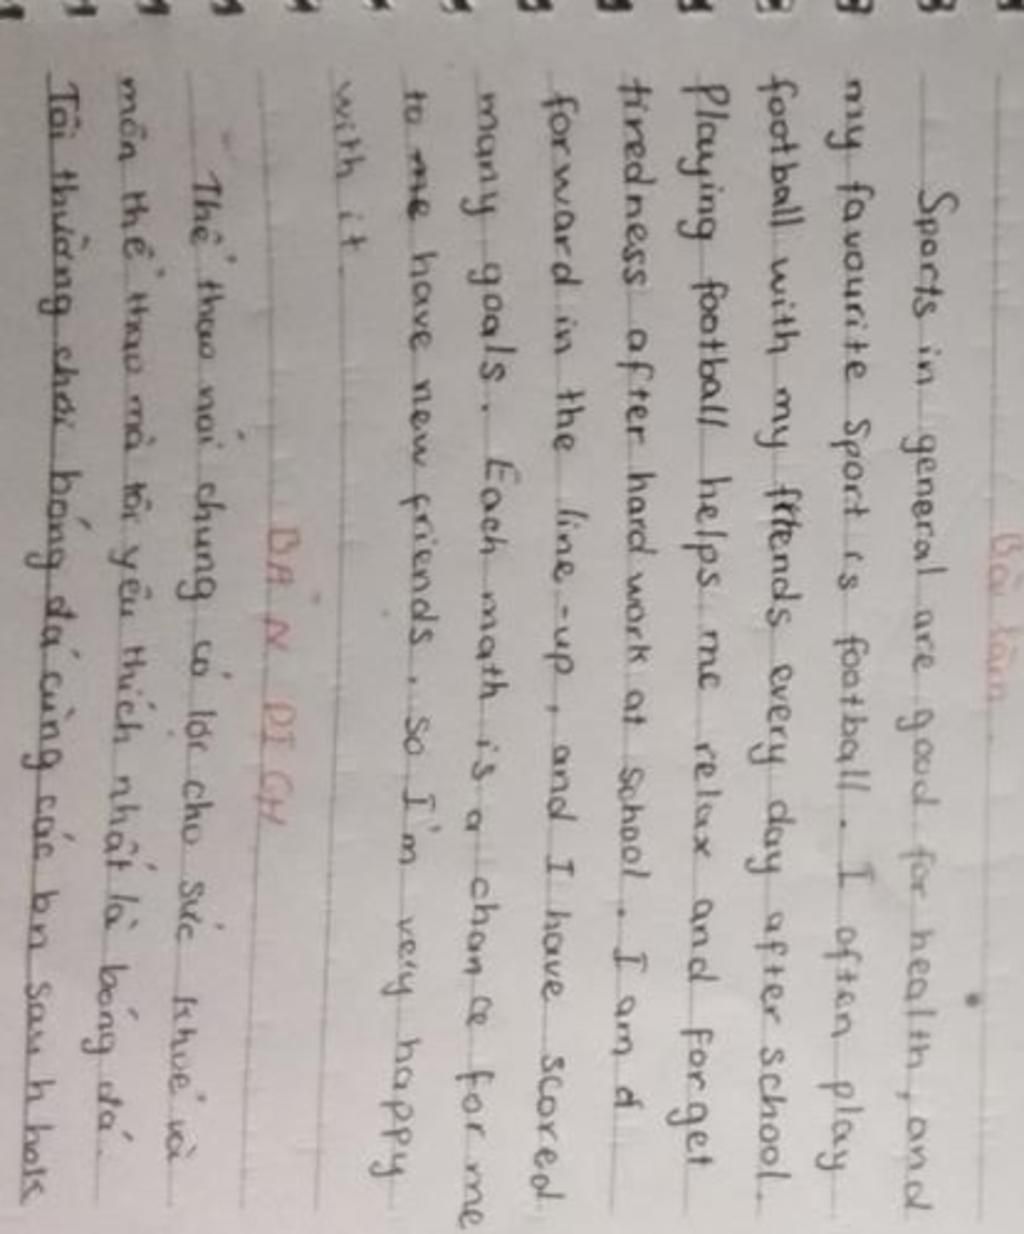 Bài làm
Sports in general are good for health, and
my favourite sport is football. I often play
football with my friends every day after school.
Playing football helps me relax and forget
tiredness after hard work at school. I am a
forward in the line-up, and I have scored
many goals. Each math is a chance for me
to me have new friends. So I'm very happy
with it.
BẢN DỊCH
Thể thao nói chung có lợi cho sức khoẻ và
môn thể thao mà tôi yêu thích nhất là bóng đá.
Tôi thường chơi bóng đá cùng các bn sau h hols